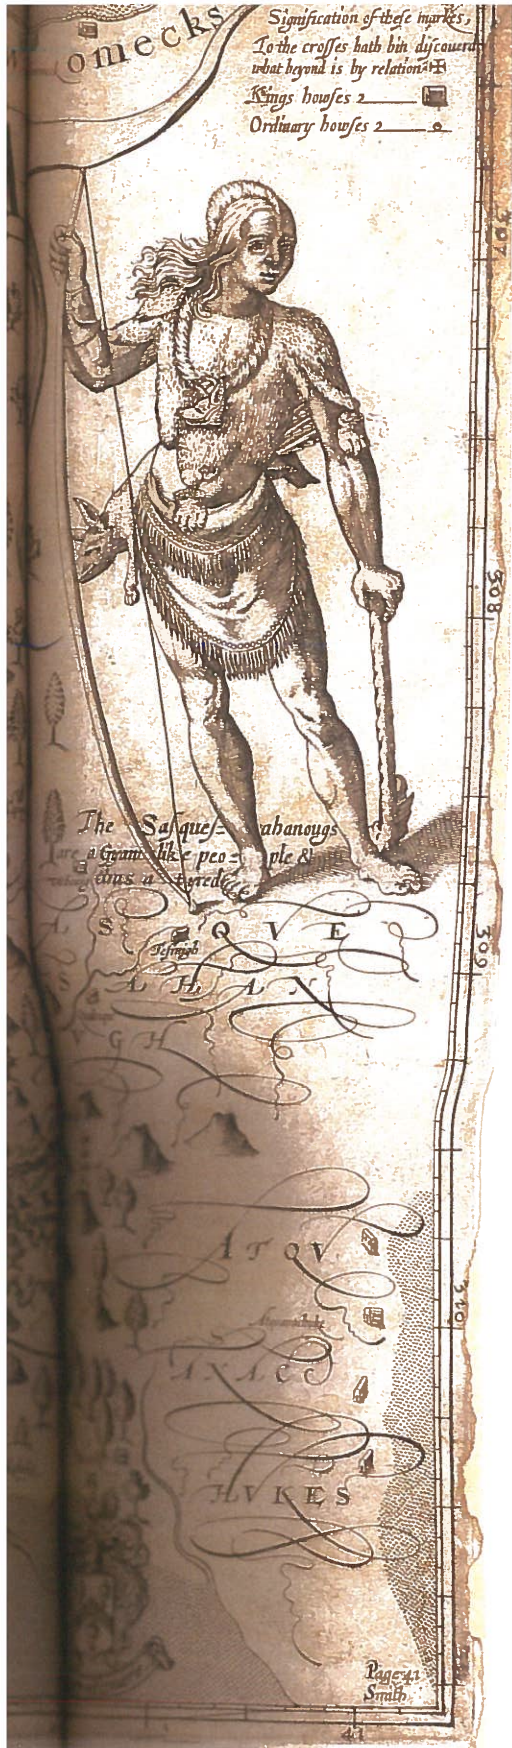 omecks
Signification of these markes,
To the crosses hath bin discouerd
what beyond is by relation
Kings howses
Ordinary howses
307
308
The Sasques= ahanougs
are a Gyant like peo= ple &
thus a= tyred
S Q V E
Tesinigh
A H A N
G H
309
A T Q V
310
A N A C C
H V K E S
Page 41
Smith
41